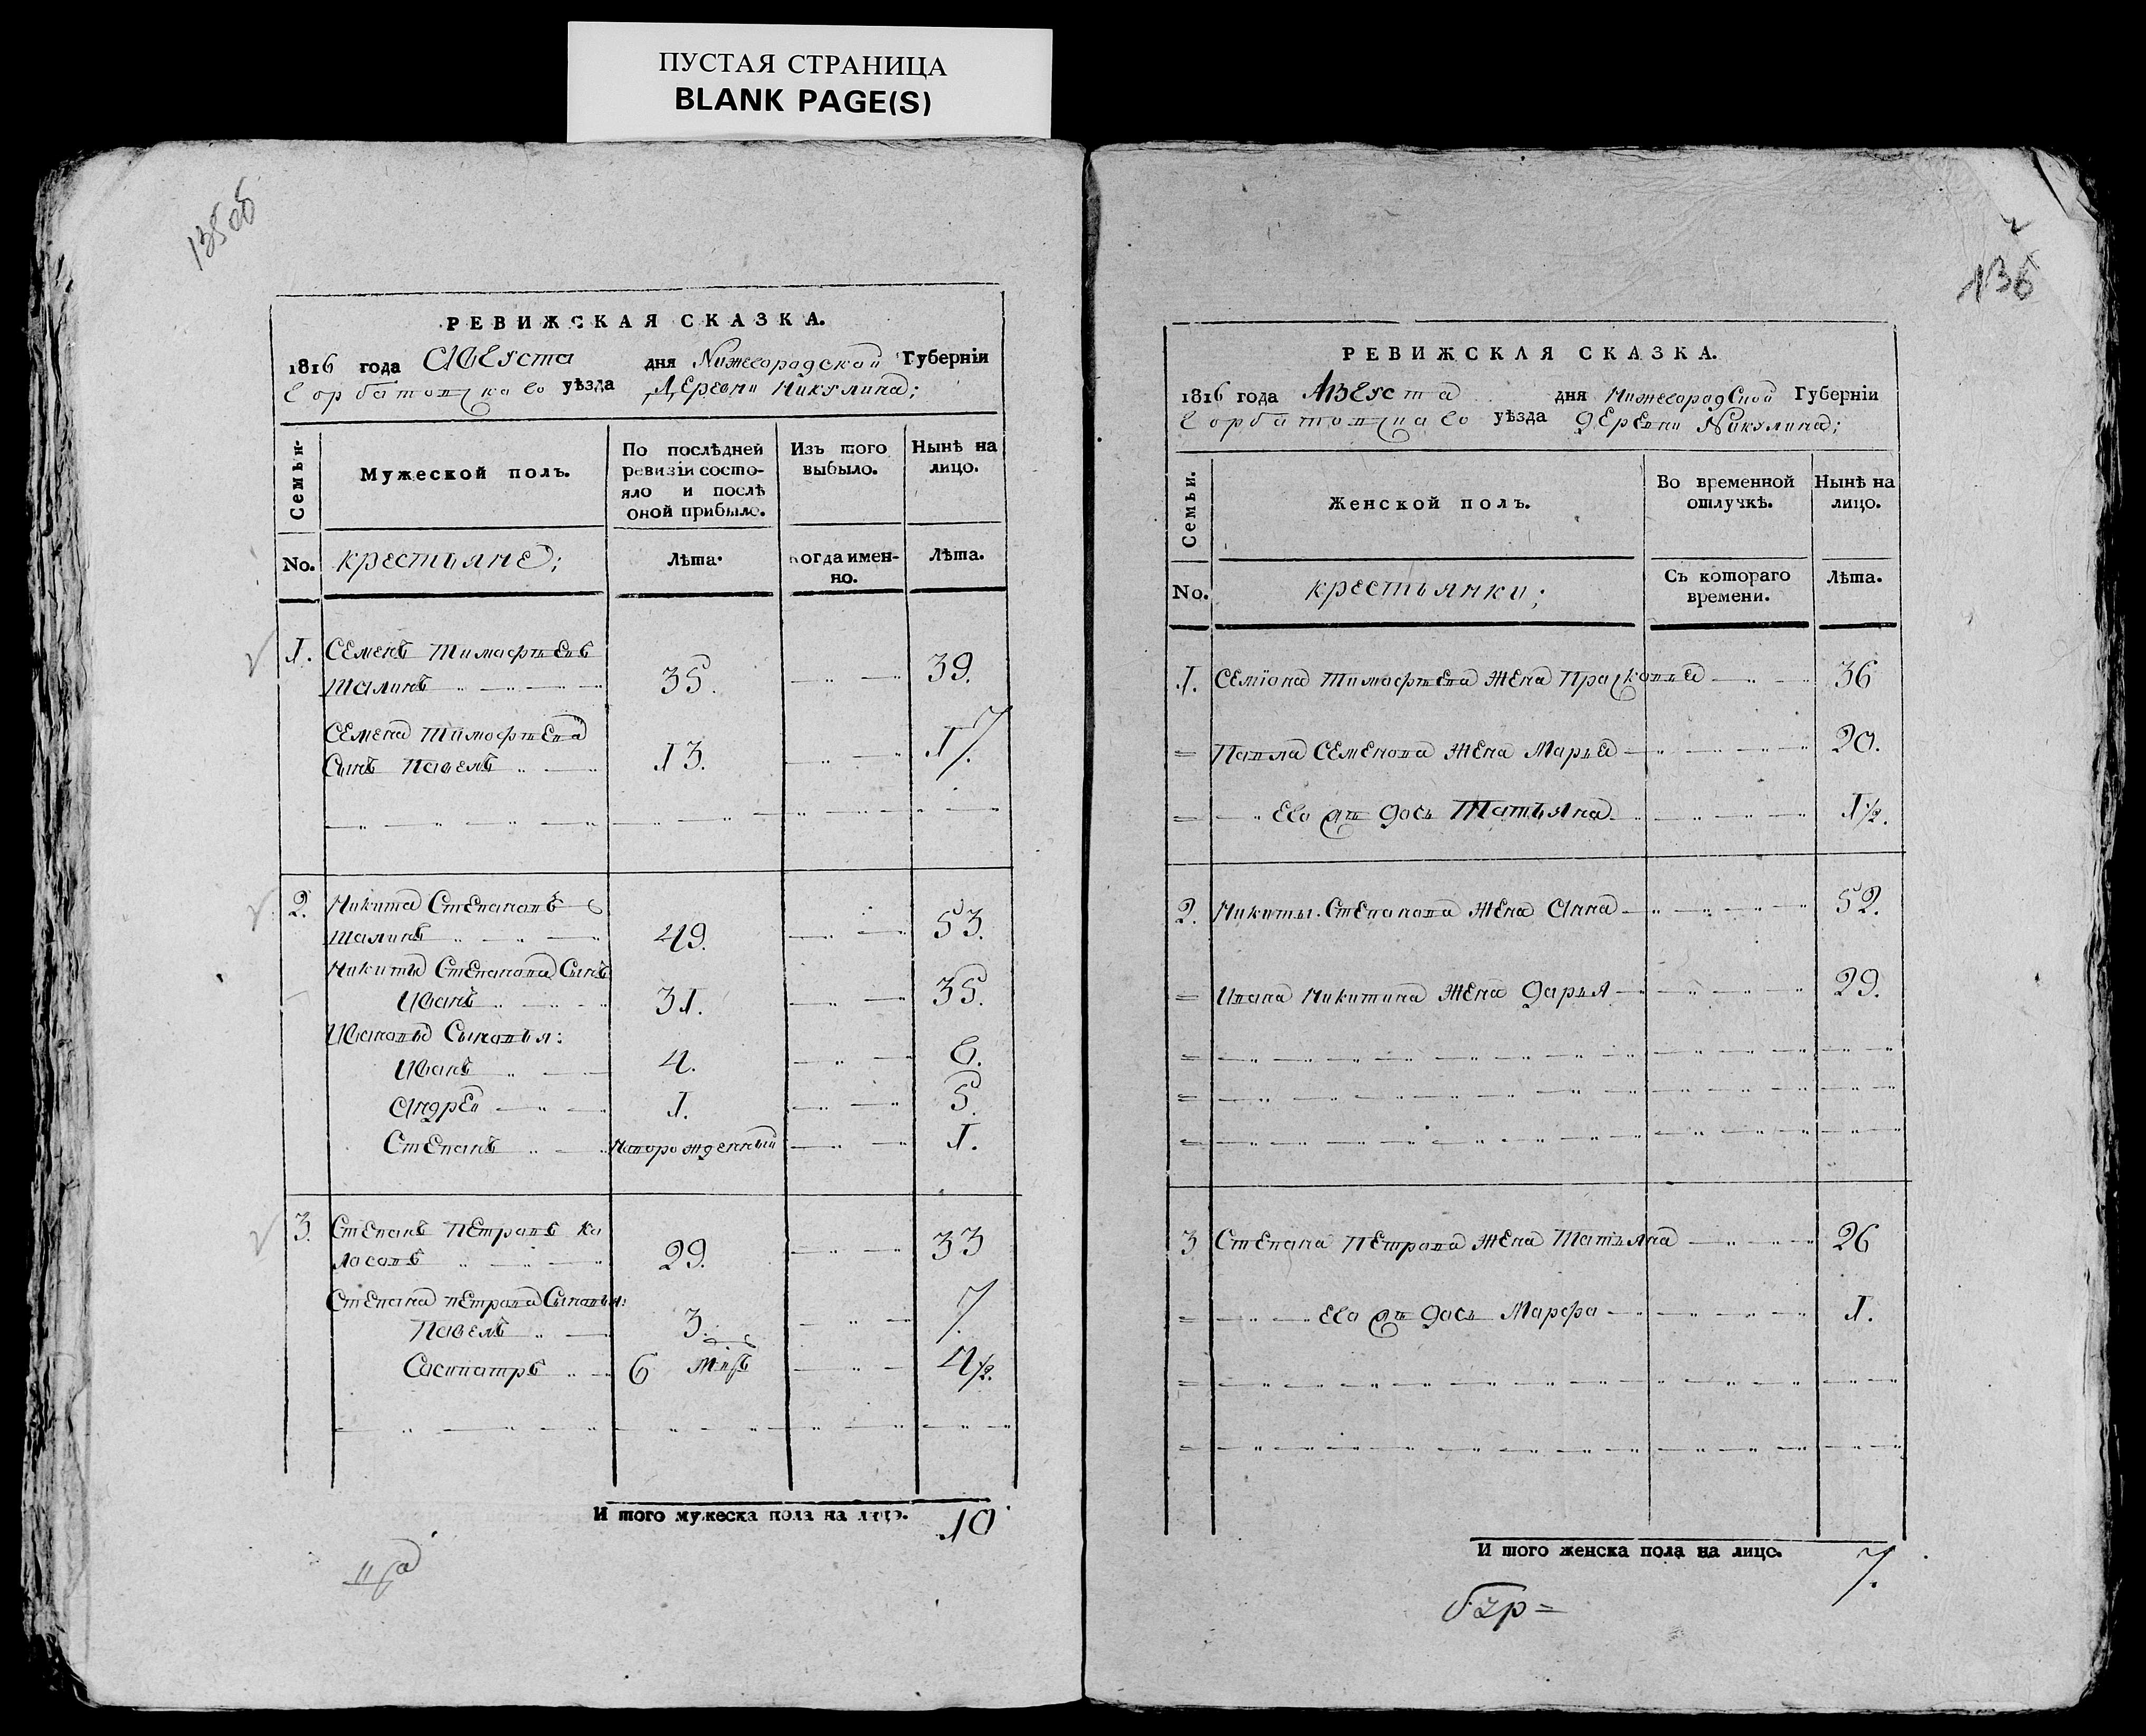 ПУСТАЯ СТРАНИЦА
BLANK PAGE(S)
135об
РЕВИЖСКАЯ СКАЗКА.
1816 года Августа дня Нижегородской Губерніи
Горбатовскаго уѣзда Деревни Никулина;
Семьи.
Мужеской полъ.
По послѣдней ревизіи состояло и послѣ оной прибыло.
Изъ того выбыло.
Нынѣ на лицо.
No.
крестьяне;
Лѣта.
когда именно.
Лѣта.
1. Семенъ Тимофѣевъ
Талинъ 35. 39.
Семена Тимофѣева
Сынъ Павелъ 13. 17.
2. Никита Степановъ
Талинъ 49. 53.
Никиты Степанова Сынъ
Иванъ 31. 35.
Ивановы Сыновья:
Иванъ 4. 6.
Андрей 1. 5.
Степанъ Новорожденный 1.
3. Степанъ Петровъ Ко
лосовъ 29. 33
Степана Петрова Сыновья:
Павелъ 3. 7.
Сосипатръ 6 мѣс 4 1/2.
И того мужеска пола на лицо. 10
136
РЕВИЖСКАЯ СКАЗКА.
1816 года Августа дня Нижегородской Губерніи
Горбатовскаго уѣзда деревни Никулина;
Семьи.
Женской полъ.
Во временной отлучкѣ.
Нынѣ на лицо.
No.
крестьянки;
Съ котораго времени.
Лѣта.
1. Семіона Тимофѣева жена Прасковья 36
Павла Семенова жена Марья 20.
Ево же дочь Татьяна 1 1/2.
2. Никиты Степанова жена Анна 52.
Ивана Никитина жена Дарья 29.
3 Степана Петрова жена Татьяна 26
Ево же дочь Марфа 1.
И того женска пола на лицо. 7.